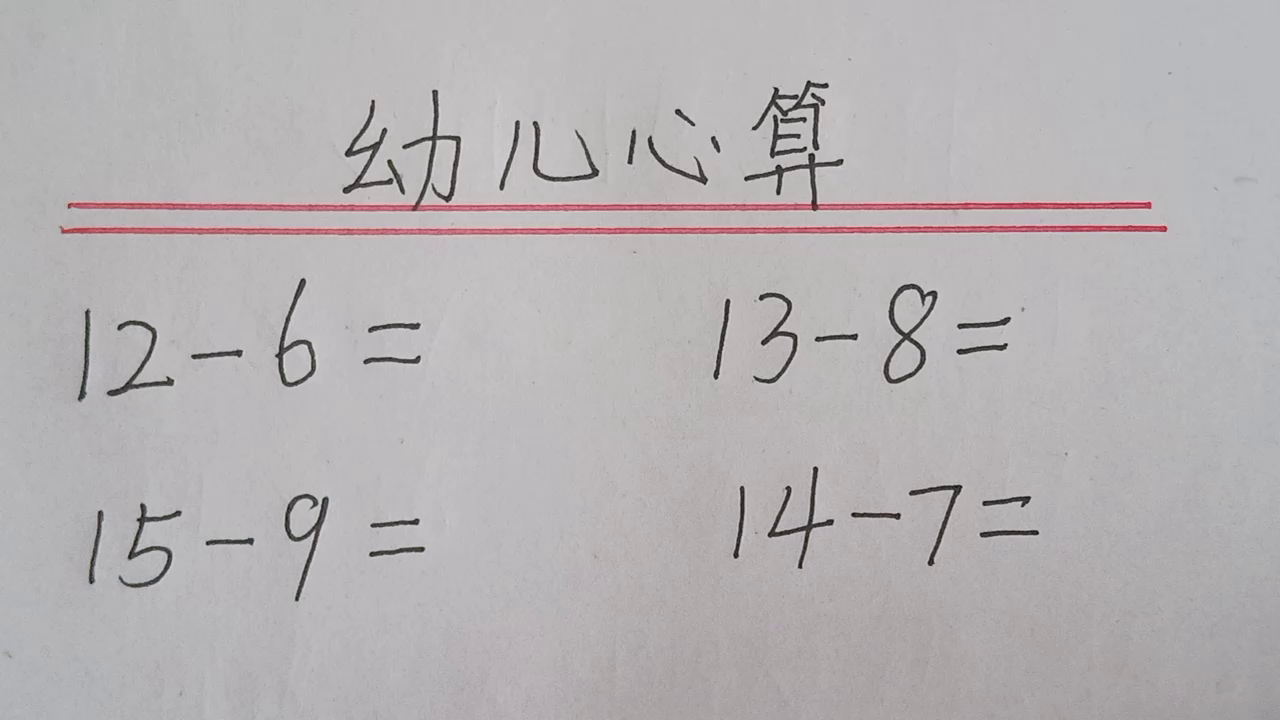 幼儿心算
12-6= 13-8=
15-9= 14-7=